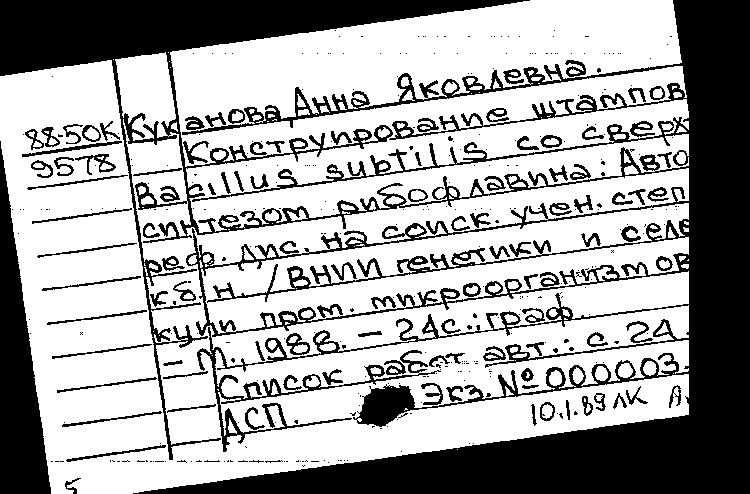 88-50К
9578
Куканова, Анна Яковлевна.
Конструирование штаммов
Bacillus subtilis со сверх
синтезом рибофлавина: Авто
реф. дис. на соиск. учен. степ
к.б.н. /ВНИИ генетики и селе
кции пром. микроорганизмов
– М., 1988. – 24с.; граф.
Список работ авт.: с. 24.
ДСП. Экз. № 000003.
10.1.89 ЛК А.
5